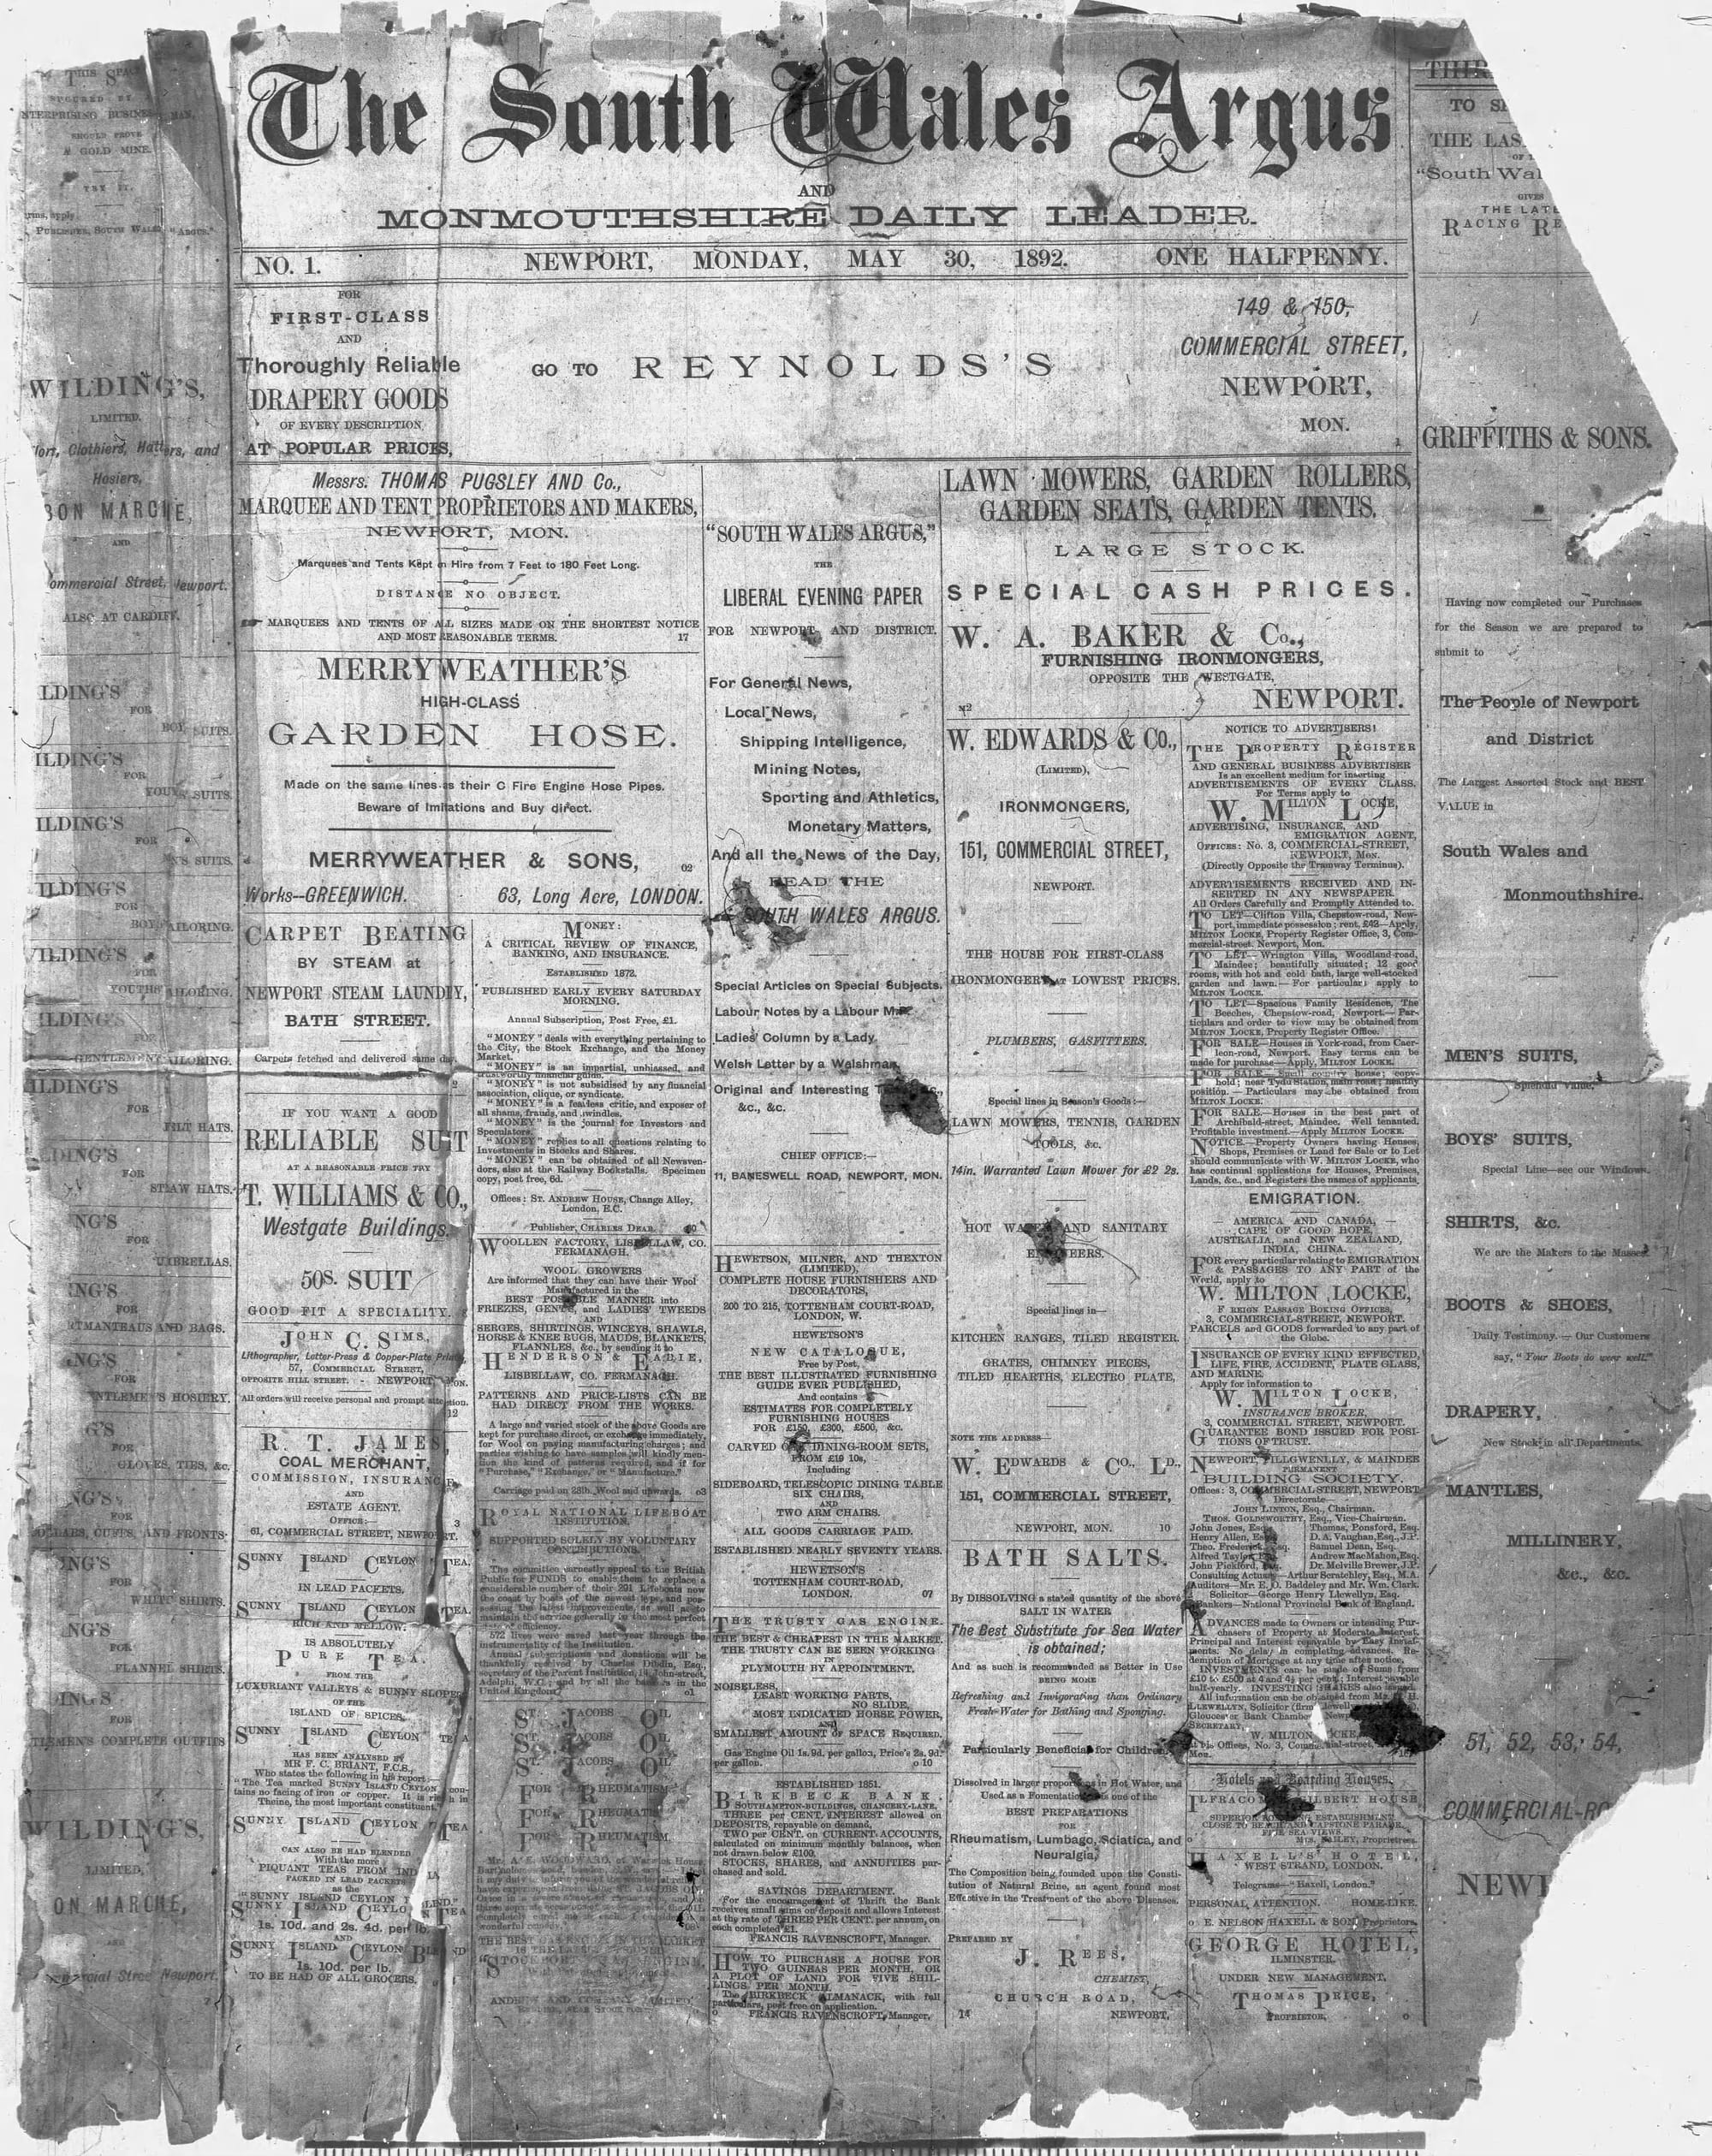 THIS SPACE
SECURED BY
ENTERPRISING BUSINESS MAN,
SHOULD PROVE
A GOLD MINE.
TRY IT.
apply
PUBLISHER, SOUTH WALES "ARGUS."
WILDING'S,
LIMITED,
Clothiers, Hatters, and
Hosiers,
BON MARCHE,
AND
Commercial Street, Newport.
ALSO AT CARDIFF.
WILDING'S
FOR
BOYS' SUITS.
WILDING'S
FOR
YOUTHS' SUITS.
WILDING'S
FOR
MEN'S SUITS.
WILDING'S
FOR
BOYS' TAILORING.
WILDING'S
FOR
YOUTHS' TAILORING.
WILDING'S
FOR
GENTLEMEN'S TAILORING.
WILDING'S
FOR
FELT HATS.
WILDING'S
FOR
STRAW HATS.
WILDING'S
FOR
UMBRELLAS.
WILDING'S
FOR
PORTMANTEAUS AND BAGS.
WILDING'S
FOR
GENTLEMEN'S HOSIERY.
WILDING'S
FOR
GLOVES, TIES, &c.
WILDING'S
FOR
COLLARS, CUFFS, AND FRONTS.
WILDING'S
FOR
WHITE SHIRTS.
WILDING'S
FOR
FLANNEL SHIRTS.
WILDING'S
FOR
GENTLEMEN'S COMPLETE OUTFITS
WILDING'S,
LIMITED,
BON MARCHE,
AND
Commercial Street Newport.
The South Wales Argus
AND
MONMOUTHSHIRE DAILY LEADER.
NO. 1. NEWPORT, MONDAY, MAY 30, 1892. ONE HALFPENNY.
FOR
FIRST-CLASS
AND
Thoroughly Reliable
DRAPERY GOODS
OF EVERY DESCRIPTION
AT POPULAR PRICES,
GO TO REYNOLDS'S
149 & 150,
COMMERCIAL STREET,
NEWPORT,
MON.
1
Messrs. THOMAS PUGSLEY AND Co.,
MARQUEE AND TENT PROPRIETORS AND MAKERS,
NEWPORT, MON.
Marquees and Tents Kept on Hire from 7 Feet to 180 Feet Long.
DISTANCE NO OBJECT.
MARQUEES AND TENTS OF ALL SIZES MADE ON THE SHORTEST NOTICE
AND MOST REASONABLE TERMS. 17
MERRYWEATHER'S
HIGH-CLASS
GARDEN HOSE.
Made on the same lines as their C Fire Engine Hose Pipes.
Beware of Imitations and Buy direct.
MERRYWEATHER & SONS, 02
Works--GREENWICH. 63, Long Acre, LONDON.
CARPET BEATING
BY STEAM at
NEWPORT STEAM LAUNDRY,
BATH STREET.
Carpets fetched and delivered same day.
2
IF YOU WANT A GOOD
RELIABLE SUIT
AT A REASONABLE PRICE TRY
T. WILLIAMS & CO.,
Westgate Buildings.
50S. SUIT
GOOD FIT A SPECIALITY.
JOHN C. SIMS,
Lithographer, Letter-Press & Copper-Plate Printer,
57, COMMERCIAL STREET,
OPPOSITE HILL STREET. - NEWPORT, MON.
All orders will receive personal and prompt attention.
12
R. T. JAMES,
COAL MERCHANT,
COMMISSION, INSURANCE,
AND
ESTATE AGENT.
OFFICE:— 3
61, COMMERCIAL STREET, NEWPORT.
SUNNY ISLAND CEYLON TEA,
IN LEAD PACKETS,
SUNNY ISLAND CEYLON TEA.
RICH AND MELLOW,
IS ABSOLUTELY
PURE TEA.
FROM THE
LUXURIANT VALLEYS & SUNNY SLOPES
OF THE
ISLAND OF SPICES,
SUNNY ISLAND CEYLON TEA
HAS BEEN ANALYSED BY
MR F. C. BRIANT, F.C.S.,
Who states the following in his report:—
"The Tea marked SUNNY ISLAND CEYLON con-
tains no facing of iron or copper. It is rich in
Theine, the most important constituent."
SUNNY ISLAND CEYLON TEA
CAN ALSO BE HAD BLENDED
With the more
PIQUANT TEAS FROM INDIA
PACKED IN LEAD PACKETS
as the
"SUNNY ISLAND CEYLON BLEND."
SUNNY ISLAND CEYLON TEA
1s. 10d. and 2s. 4d. per lb.
AND
SUNNY ISLAND CEYLON BLEND
1s. 10d. per lb.
TO BE HAD OF ALL GROCERS.
MONEY:
A CRITICAL REVIEW OF FINANCE,
BANKING, AND INSURANCE.
ESTABLISHED 1872.
PUBLISHED EARLY EVERY SATURDAY
MORNING.
Annual Subscription, Post Free, £1.
"MONEY" deals with everything pertaining to
the City, the Stock Exchange, and the Money
Market.
"MONEY" is an impartial, unbiassed, and
trustworthy financial guide.
"MONEY" is not subsidised by any financial
association, clique, or syndicate.
"MONEY" is a fearless critic, and exposer of
all shams, frauds, and swindles.
"MONEY" is the journal for Investors and
Speculators.
"MONEY" replies to all questions relating to
Investments in Stocks and Shares.
"MONEY" can be obtained of all Newsven-
dors, also at the Railway Bookstalls. Specimen
copy, post free, 6d.
Offices: ST. ANDREW HOUSE, Change Alley,
London, E.C.
Publisher, CHARLES DEAR.
WOOLLEN FACTORY, LISBELLAW, CO.
FERMANAGH.
WOOL GROWERS
Are informed that they can have their Wool
Manufactured in the
BEST POSSIBLE MANNER into
FRIEZES, GENTS', and LADIES' TWEEDS
AND
SERGES, SHIRTINGS, WINCEYS, SHAWLS,
HORSE & KNEE RUGS, MAUDS, BLANKETS,
FLANNLES, &c., by sending it to
HENDERSON & EADIE,
LISBELLAW, CO. FERMANAGH.
PATTERNS AND PRICE-LISTS CAN BE
HAD DIRECT FROM THE WORKS.
A large and varied stock of the above Goods are
kept for purchase direct, or exchange immediately,
for Wool on paying manufacturing charges; and
parties wishing to have samples will kindly men-
tion the kind of patterns required, and if for
"Purchase," "Exchange," or "Manufacture."
Carriage paid on 28lb. Wool and upwards. o3
ROYAL NATIONAL LIFEBOAT
INSTITUTION.
SUPPORTED SOLELY BY VOLUNTARY
CONTRIBUTIONS.
The committee earnestly appeal to the British
Public for FUNDS to enable them to replace a
considerable number of their 291 Lifeboats now
on the coast by boats of the newest type, and pos-
sessing the latest improvements, as well as to
maintain the service generally in the most perfect
state of efficiency.
572 lives were saved last year through the
instrumentality of the Institution.
Annual subscriptions and donations will be
thankfully received by Charles Dibdin, Esq.,
secretary of the Parent Institution, 14, John-street,
Adelphi, W.C.; and by all the bankers in the
United Kingdom. o1
ST. JACOBS OIL
ST. JACOBS OIL
ST. JACOBS OIL
FOR RHEUMATISM.
FOR RHEUMATISM.
FOR RHEUMATISM.
Mr. A. E. WOODWARD, of Warwick House,
THE BEST GAS ENGINE IN THE MARKET
IS THE LATEST
"STOCKPORT" GAS ENGINE.
"SOUTH WALES ARGUS,"
THE
LIBERAL EVENING PAPER
FOR NEWPORT AND DISTRICT.
For General News,
Local News,
Shipping Intelligence,
Mining Notes,
Sporting and Athletics,
Monetary Matters,
And all the News of the Day,
READ THE
SOUTH WALES ARGUS.
Special Articles on Special Subjects.
Labour Notes by a Labour M.P.
Ladies' Column by a Lady.
Welsh Letter by a Welshman.
Original and Interesting
&c., &c.
CHIEF OFFICE:—
11, BANESWELL ROAD, NEWPORT, MON.
HEWETSON, MILNER, AND THEXTON
(LIMITED),
COMPLETE HOUSE FURNISHERS AND
DECORATORS,
200 TO 215, TOTTENHAM COURT-ROAD,
LONDON, W.
HEWETSON'S
NEW CATALOGUE,
Free by Post,
THE BEST ILLUSTRATED FURNISHING
GUIDE EVER PUBLISHED,
And contains
ESTIMATES FOR COMPLETELY
FURNISHING HOUSES
FOR £150, £300, £500, &c.
CARVED OAK DINING-ROOM SETS,
FROM £19 10s,
Including
SIDEBOARD, TELESCOPIC DINING TABLE
SIX CHAIRS,
AND
TWO ARM CHAIRS.
ALL GOODS CARRIAGE PAID.
ESTABLISHED NEARLY SEVENTY YEARS.
HEWETSON'S
TOTTENHAM COURT-ROAD,
LONDON. 07
THE TRUSTY GAS ENGINE.
THE BEST & CHEAPEST IN THE MARKET.
THE TRUSTY CAN BE SEEN WORKING
IN
PLYMOUTH BY APPOINTMENT.
NOISELESS,
LEAST WORKING PARTS,
NO SLIDE,
MOST INDICATED HORSE POWER,
AND
SMALLEST AMOUNT OF SPACE REQUIRED.
Gas Engine Oil 1s. 9d. per gallon, Price's 2s. 9d.
per gallon. o 10
ESTABLISHED 1851.
BIRKBECK BANK.
SOUTHAMPTON-BUILDINGS, CHANCERY-LANE.
THREE per CENT. INTEREST allowed on
DEPOSITS, repayable on demand.
TWO per CENT. on CURRENT ACCOUNTS,
calculated on minimum monthly balances, when
not drawn below £100.
STOCKS, SHARES, and ANNUITIES pur-
chased and sold.
SAVINGS DEPARTMENT.
For the encouragement of Thrift the Bank
receives small sums on deposit and allows Interest
at the rate of THREE PER CENT. per annum, on
each completed £1.
FRANCIS RAVENSCROFT, Manager.
HOW TO PURCHASE A HOUSE FOR
TWO GUINEAS PER MONTH, OR
A PLOT OF LAND FOR FIVE SHIL-
LINGS PER MONTH.
The BIRKBECK ALMANACK, with full
particulars, post free on application.
FRANCIS RAVENSCROFT, Manager.
LAWN MOWERS, GARDEN ROLLERS,
GARDEN SEATS, GARDEN TENTS.
LARGE STOCK.
SPECIAL CASH PRICES.
W. A. BAKER & Co.,
FURNISHING IRONMONGERS,
OPPOSITE THE WESTGATE,
NEWPORT.
W. EDWARDS & Co.,
(LIMITED),
IRONMONGERS,
151, COMMERCIAL STREET,
NEWPORT.
THE HOUSE FOR FIRST-CLASS
IRONMONGERY at LOWEST PRICES.
PLUMBERS, GASFITTERS.
Special lines in Season's Goods:—
LAWN MOWERS, TENNIS, GARDEN
TOOLS, &c.
14in. Warranted Lawn Mower for £2 2s.
HOT WATER AND SANITARY
ENGINEERS.
Special lines in—
KITCHEN RANGES, TILED REGISTER.
GRATES, CHIMNEY PIECES,
TILED HEARTHS, ELECTRO PLATE,
NOTE THE ADDRESS—
W. EDWARDS & CO., LD.,
151, COMMERCIAL STREET,
NEWPORT, MON. 10
BATH SALTS.
By DISSOLVING a stated quantity of the above
SALT IN WATER
The Best Substitute for Sea Water
is obtained;
And as such is recommended as Better in Use
BEING MORE
Refreshing and Invigorating than Ordinary
Fresh Water for Bathing and Sponging.
Particularly Beneficial for Children.
Dissolved in larger proportions in Hot Water, and
Used as a Fomentation is one of the
BEST PREPARATIONS
FOR
Rheumatism, Lumbago, Sciatica, and
Neuralgia,
The Composition being founded upon the Consti-
tution of Natural Brine, an agent found most
Effective in the Treatment of the above Diseases.
PREPARED BY
J. REES,
CHEMIST,
CHURCH ROAD,
14 NEWPORT.
NOTICE TO ADVERTISERS!
THE PROPERTY REGISTER
AND GENERAL BUSINESS ADVERTISER
Is an excellent medium for inserting
ADVERTISEMENTS OF EVERY CLASS.
For Terms apply to
W. MILTON LOCKE,
ADVERTISING, INSURANCE, AND
EMIGRATION AGENT,
OFFICES: No. 3, COMMERCIAL-STREET,
NEWPORT, Mon.
(Directly Opposite the Tramway Terminus).
ADVERTISEMENTS RECEIVED AND IN-
SERTED IN ANY NEWSPAPER.
All Orders Carefully and Promptly Attended to.
TO LET—Clifton Villa, Chepstow-road, New-
port, immediate possession; rent, £42—Apply,
MILTON LOCKE, Property Register Office, 3, Com-
mercial-street, Newport, Mon.
TO LET—Wrington Villa, Woodland-road,
Maindee; beautifully situated; 12 good
rooms, with hot and cold bath, large well-stocked
garden and lawn.—For particulars apply to
MILTON LOCKE.
TO LET—Spacious Family Residence, The
Beeches, Chepstow-road, Newport.—Par-
ticulars and order to view may be obtained from
MILTON LOCKE, Property Register Office.
FOR SALE—Houses in York-road, from Caer-
leon-road, Newport. Easy terms can be
made for purchase—Apply, MILTON LOCKE.
FOR SALE—Small country house; copy-
hold; near Tydu Station, main road; healthy
position.—Particulars may be obtained from
MILTON LOCKE.
FOR SALE—Houses in the best part of
Archibald-street, Maindee. Well tenanted.
Profitable investment.—Apply MILTON LOCKE.
NOTICE.—Property Owners having Houses,
Shops, Premises or Land for Sale or to Let
should communicate with W. MILTON LOCKE, who
has continual applications for Houses, Premises,
Lands, &c., and Registers the names of applicants.
EMIGRATION.
AMERICA AND CANADA,
CAPE OF GOOD HOPE,
AUSTRALIA, and NEW ZEALAND,
INDIA, CHINA.
FOR every particular relating to EMIGRATION
& PASSAGES TO ANY PART of the
World, apply to
W. MILTON LOCKE,
F REIGN PASSAGE BOXING OFFICES,
3, COMMERCIAL-STREET, NEWPORT.
PARCELS and GOODS forwarded to any part of
the Globe.
INSURANCE OF EVERY KIND EFFECTED,
LIFE, FIRE, ACCIDENT, PLATE GLASS,
AND MARINE.
Apply for information to
W. MILTON LOCKE,
INSURANCE BROKER,
3, COMMERCIAL STREET, NEWPORT.
GUARANTEE BOND ISSUED FOR POSI-
TIONS OF TRUST.
NEWPORT, PILLGWENLLY, & MAINDEE
PERMANENT
BUILDING SOCIETY.
Offices: 3, COMMERCIAL STREET, NEWPORT
Directorate—
JOHN LINTON, Esq., Chairman.
THOS. GOLDSWORTHY, Esq., Vice-Chairman.
John Jones, Esq. Thomas, Ponsford, Esq.
Henry Allen, Esq. D. A. Vaughan, Esq., J.P.
Theo. Frederick, Esq. Samuel Dean, Esq.
Alfred Taylor, Esq. Andrew MacMahon, Esq.
John Pickford, Esq. Dr. Melville Brewer, J.P.
Consulting Actuary—Arthur Scratchley, Esq., M.A.
Auditors—Mr. E. O. Baddeley and Mr. Wm. Clark.
Solicitor—George Henry Llewellyn, Esq.
Bankers—National Provincial Bank of England.
ADVANCES made to Owners or intending Pur-
chasers of Property at Moderate Interest.
Principal and Interest repayable by Easy Instal-
ments. No delay in completing advances. Re-
demption of Mortgage at any time after notice.
INVESTMENTS can be made of Sums from
£10 to £500 at 4 and 4½ per cent.; Interest payable
half-yearly. INVESTING SHARES also issued.
All information can be obtained from Mr. G. H.
LLEWELLYN, Solicitor (firm Llewellyn
Gloucester Bank Chambers, Newport
SECRETARY,
W. MILTON LOCKE.
at the Offices, No. 3, Commercial-street,
Mon.
Hotels and Boarding Houses.
ILFRACOMBE—GILBERT HOUSE
SUPERIOR BOARDING ESTABLISHMENT.
CLOSE TO BEACH AND CAPSTONE PARADE.
FINE SEA VIEWS.
Mrs. BAILEY, Proprietress.
HAXELL'S HOTEL,
WEST STRAND, LONDON.
Telegrams—"Haxell, London."
PERSONAL ATTENTION. HOME-LIKE.
o E. NELSON HAXELL & SON, Proprietors.
GEORGE HOTEL,
ILMINSTER.
UNDER NEW MANAGEMENT.
THOMAS PRICE,
PROPRIETOR. o
TO
THE LAS
"South Wal
GIVES
THE LATE
RACING RE
GRIFFITHS & SONS.
Having now completed our Purchases
for the Season we are prepared to
submit to
The People of Newport
and District
The Largest Assorted Stock and BEST
VALUE in
South Wales and
Monmouthshire.
MEN'S SUITS,
Splendid Value.
BOYS' SUITS,
Special Line—see our Windows.
SHIRTS, &c.
We are the Makers to the Masses.
BOOTS & SHOES,
Daily Testimony.—Our Customers
say, "Your Boots do wear well."
DRAPERY,
New Stock in all Departments.
MANTLES,
MILLINERY,
&c., &c.
51, 52, 53, 54,
COMMERCIAL-RO
NEWP